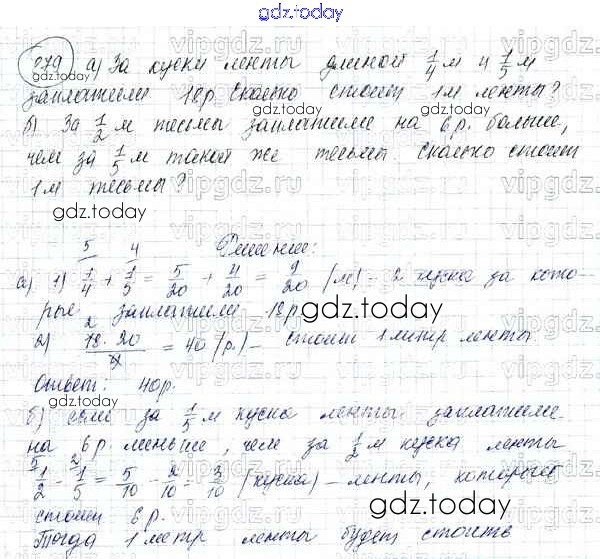 gdz.today
279 а) За куски ленты длиной 1/4 м и 1/5 м
заплатили 18р. Сколько стоит 1м ленты?
б) За 1/2 м тесьмы заплатили на 6р. больше,
чем за 1/5 м такой же тесьмы. Сколько стоит
1м тесьмы?
gdz.today
Решение:
а) 1) 1/4 + 1/5 = 5/20 + 4/20 = 9/20 (м) - 2 куска за кото-
рые заплатили 18р.
gdz.today
2) 18·20/9 = 40 (р.) - стоит 1 метр ленты.
Ответ: 40р.
gdz.today
б) если за 1/5 м куска ленты заплатили
на 6р. меньше, чем за 1/2 м куска ленты
1/2 - 1/5 = 5/10 - 2/10 = 3/10 (куска) - ленты, которые
стоят 6р.
gdz.today
Тогда 1 метр ленты будет стоить